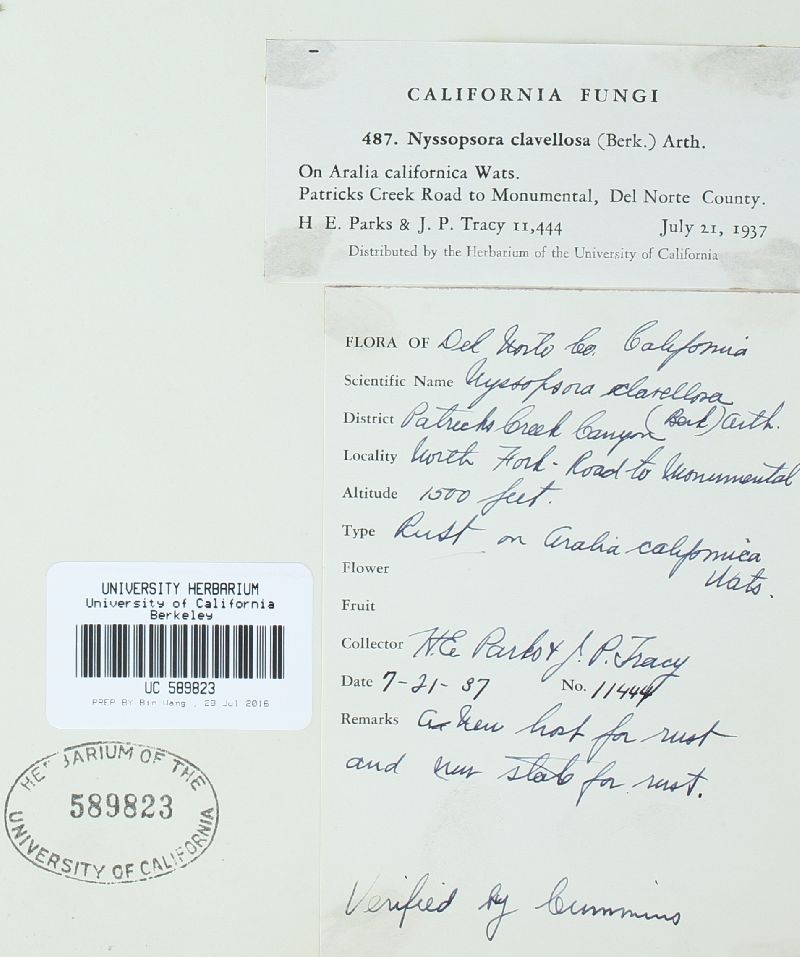 CALIFORNIA FUNGI
487. Nyssopsora clavellosa (Berk.) Arth.
On Aralia californica Wats.
Patricks Creek Road to Monumental, Del Norte County.
H E. Parks & J. P. Tracy 11,444 July 21, 1937
Distributed by the Herbarium of the University of California
FLORA OF Del Norte Co. California
Scientific Name Nyssopsora clavellosa
District Patricks Creek Canyon (Berk) Arth.
Locality North Fork - Road to Monumental
Altitude 1500 feet.
Type Rust on Aralia californica
Wats.
Flower
Fruit
Collector H.E. Parks & J. P. Tracy
Date 7-21-37 No. 11444
Remarks a New host for rust
and new state for rust.
Verified by Cummins
UNIVERSITY HERBARIUM
University of California
Berkeley
UC 589823
PREP BY Bin Wang , 29 Jul 2016
HERBARIUM OF THE
589823
UNIVERSITY OF CALIFORNIA